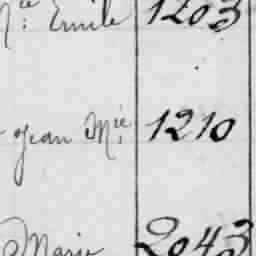 cie: Emile 1203
Jean Mie, 1210
Marie 2043